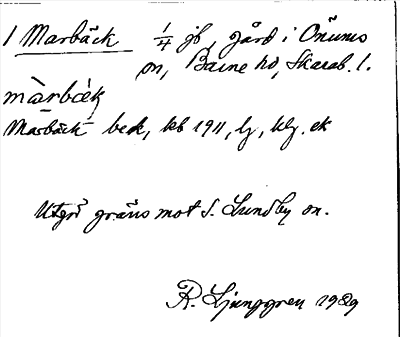 1 Marbäck 1/4 jb, gård i Önums
sn, Barne hd, Skarab. l.
màrbæ̀k
Marbäck bek, kb 1911, lj, klg. ek
Utgör gräns mot S. Lundby sn.
R. Ljunggren 1929